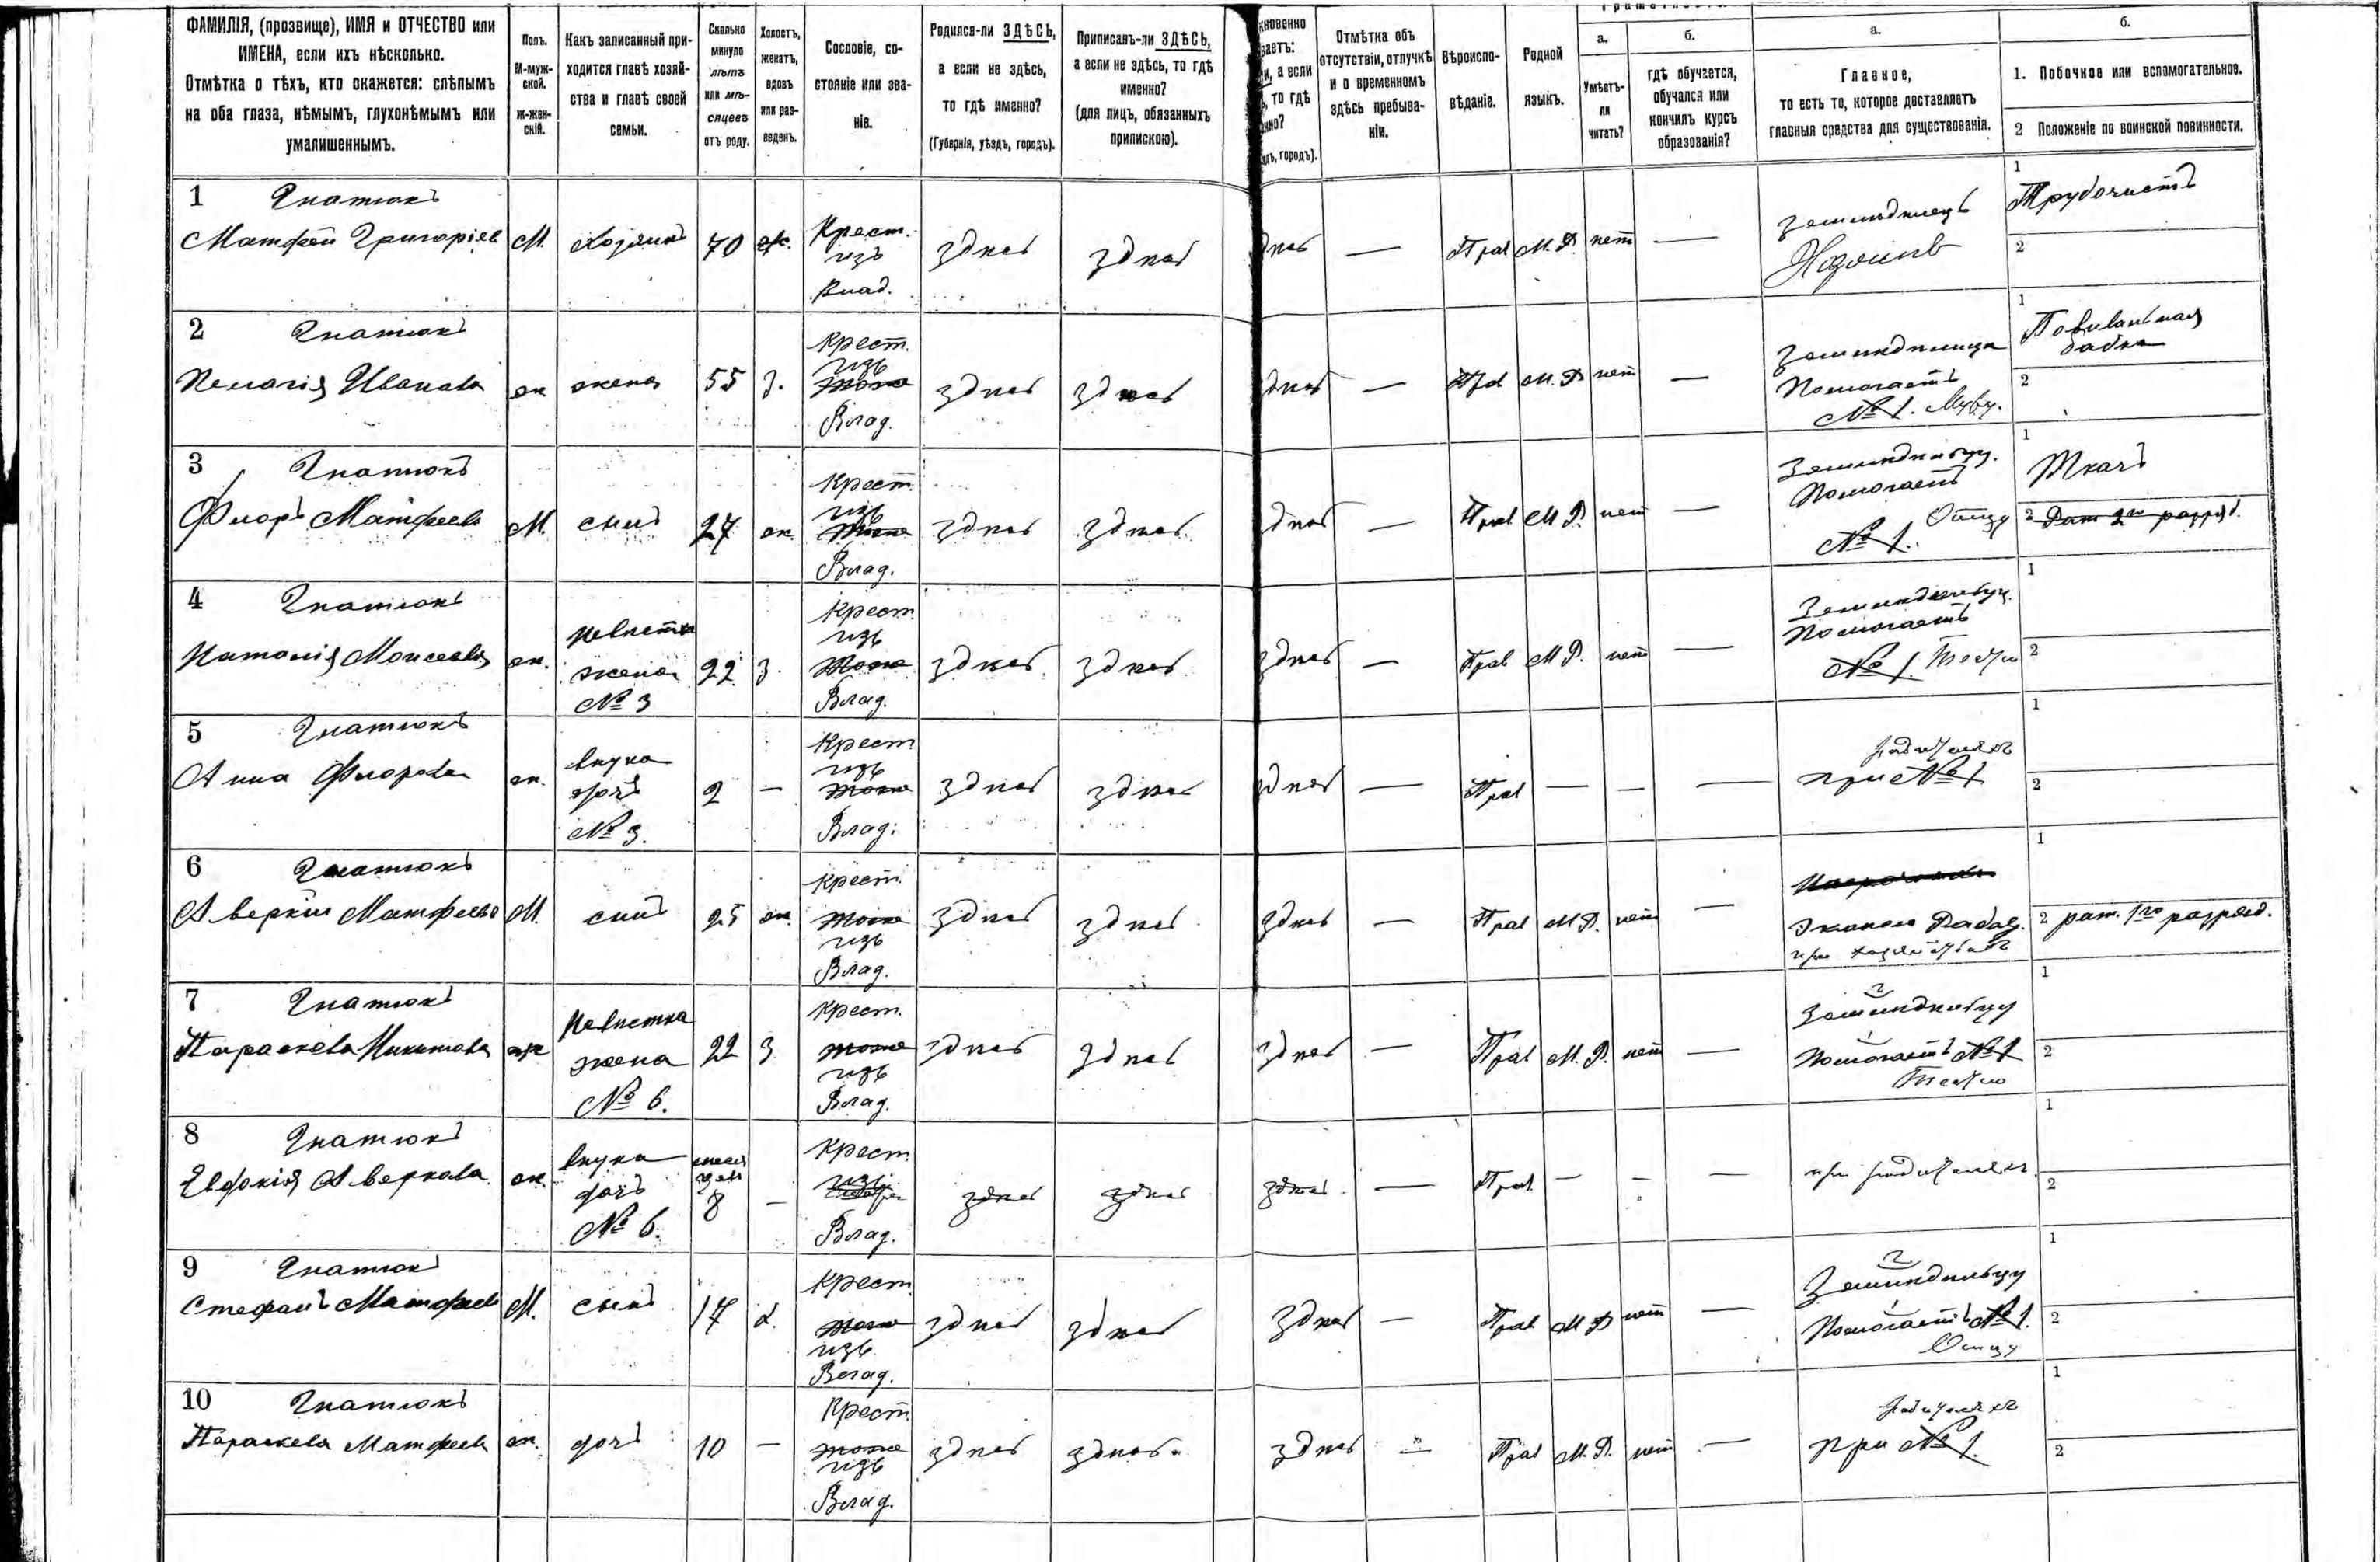 ФАМИЛІЯ, (прозвище), ИМЯ и ОТЧЕСТВО или
ИМЕНА, если ихъ нѣсколько.
Отмѣтка о тѣхъ, кто окажется: слѣпымъ
на оба глаза, нѣмымъ, глухонѣмымъ или
умалишеннымъ.
Полъ.
М-муж-
ской.
Ж-жен-
скій.
Какъ записанный при-
ходится главѣ хозяй-
ства и главѣ своей
семьи.
Сколько
минуло
лѣтъ
или мѣ-
сяцевъ
отъ роду.
Холостъ,
женатъ,
вдовъ
или раз-
веденъ.
Сословіе, со-
стояніе или зва-
ніе.
Родился-ли ЗДѢСЬ,
а если не здѣсь,
то гдѣ именно?
(Губернія, уѣздъ, городъ).
Приписанъ-ли ЗДѢСЬ,
а если не здѣсь, то гдѣ
именно?
(для лицъ, обязанныхъ
припискою).
кновенно
ваетъ:
и, а если
, то гдѣ
нно?
здъ, городъ).
Отмѣтка объ
отсутствіи, отлучкѣ
и о временномъ
здѣсь пребыва-
ніи.
Вѣроиспо-
вѣданіе.
Родной
языкъ.
а.
Умѣетъ-
ли
читать?
б.
гдѣ обучается,
обучался или
кончилъ курсъ
образованія?
а.
Главное,
то есть то, которое доставляетъ
главныя средства для существованія.
б.
1. Побочное или вспомогательное.
2 Положеніе по воинской повинности.
1 Гнатюкъ
Матфей Григоріев М. Хозяинъ 70 ж. Крест. изъ Влад. здѣсь здѣсь
здѣсь — Прав М.Р. нет — земледѣлецъ Хозяинъ
1 Трубочистъ
2
2 Гнатюкъ
Пелагія Иванова ж жена 55 з. Крест. изъ тоже Влад. здѣсь здѣсь
здѣсь — Прав М.Р нет — Помогаетъ № 1. Мужу.
1 Повивальная бабка
2
3 Гнатюкъ
Флоръ Матфеевъ М. сынъ 27 ж. Крест. изъ тоже Влад. здѣсь здѣсь
здѣсь — Прав М Р. нет — Земледѣльцу. Помогаетъ № 1. Отцу
1 Ткачъ
2 Рат 2го разряд.
4 Гнатюкъ
Наталія Моисеева ж. невѣстка жена № 3 22 з. Крест. изъ тоже Влад. здѣсь здѣсь
здѣсь — Прав М Р. нет — Земледѣльцу. Помогаетъ № 1. Тестю
1
2
5 Гнатюкъ
Анна Флорова ж. внука дочь № 3. 2 — Крест изъ тоже Влад. здѣсь здѣсь
здѣсь — Прав — — — при № 1 родителяхъ
1
2
6 Гнатюкъ
Аверкій Матфеевъ М. сынъ 25 ж. Крест. тоже изъ Влад. здѣсь здѣсь
здѣсь — Прав М Р. нет —
1
2 рат. 1го разряд.
7 Гнатюкъ
Параскева Никитова ж невѣстка жена № 6. 22 з Крест. тоже изъ Влад. здѣсь здѣсь
здѣсь — Прав М. Р. нет — Земледѣльцу Помогаетъ № 1 Тестю
1
2
8 Гнатюкъ
Евдокія Аверкова ж. внука дочь № 6. 8 — Крест изъ Влад. здѣсь здѣсь
здѣсь — Прав — — — при родителяхъ.
1
2
9 Гнатюкъ
Стефанъ Матфеев М. сынъ 17 х. Крест. тоже изъ Влад. здѣсь здѣсь
здѣсь — Прав М Р нет — Земледѣльцу Помогаетъ № 1. Отцу
1
2
10 Гнатюкъ
Параскева Матфеева ж. дочь 10 — Крест. тоже изъ Влад. здѣсь здѣсь
здѣсь — Прав М. Р. нет — при № 1. родителяхъ
1
2